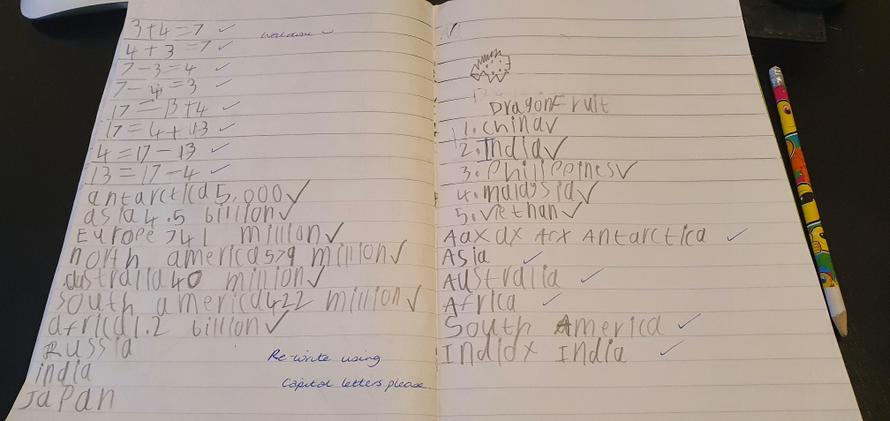 3+4=7 ✓
4+3=7 ✓
7-3=4 ✓
7-4=3 ✓
17=13+4 ✓
17=4+13 ✓
4=17-13 ✓
13=17-4 ✓
antarctica 5,000 ✓
asia 4.5 billion ✓
Europe 741 million ✓
north america 579 million ✓
australia 40 million ✓
south america 422 million ✓
africa 1.2 billion ✓
Russia
india
Japan
Re-write using
Capital letters please
DragonFruit
1. China ✓
2. India ✓
3. Philippines ✓
4. malaysia ✓
5. Vethan ✓
Aax ax Acx Antarctica ✓
Asia ✓
Australia ✓
Africa ✓
South America ✓
Indiax India ✓